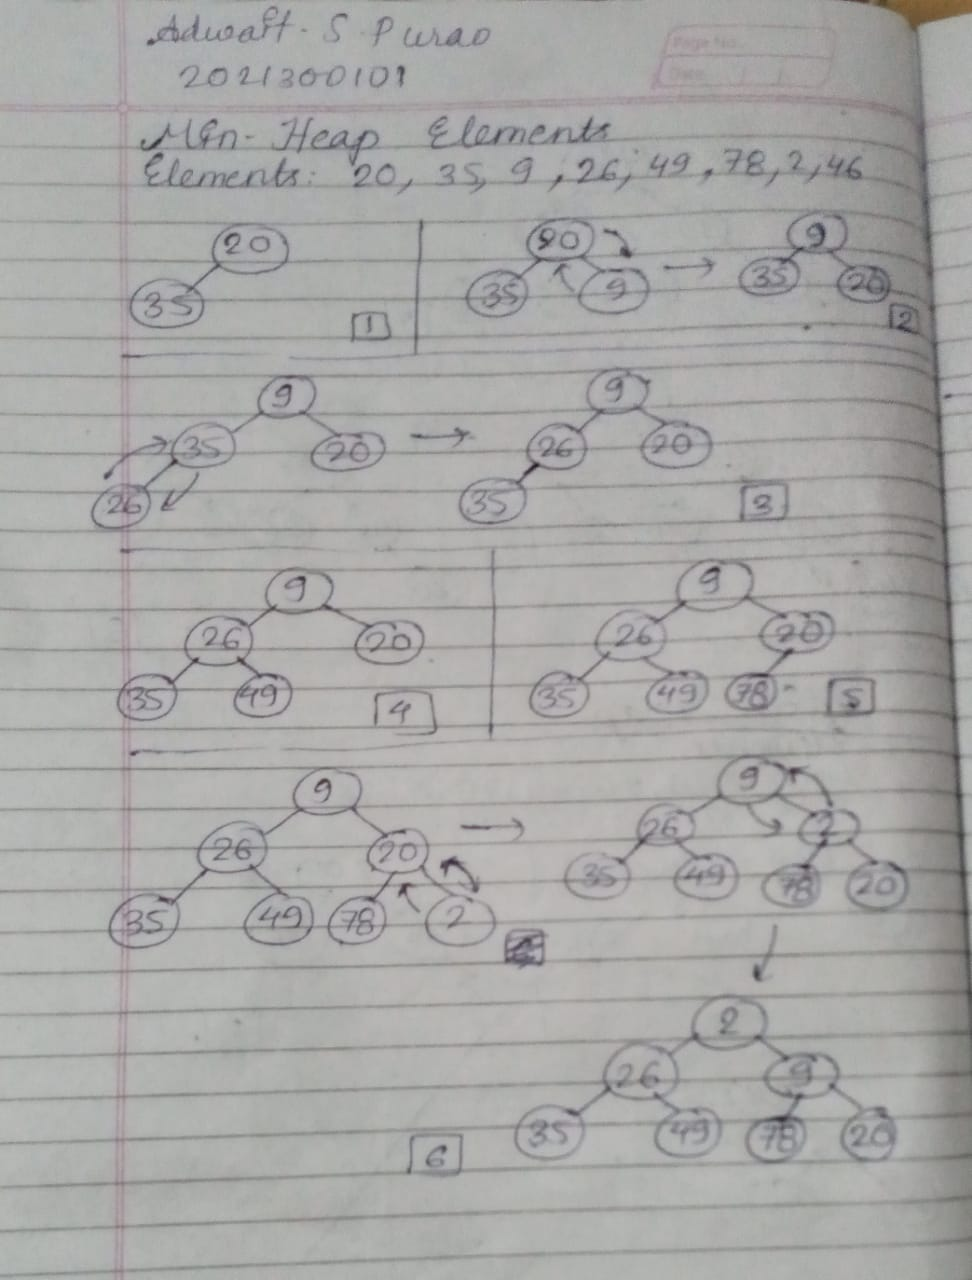 Adwait. S. Purao
2021300101
Page No.
Date
Min-Heap Elements
Elements: 20, 35, 9, 26, 49, 78, 2, 46
20
35
1
20
35 9
→
9
35 20
2
9
35 20
26
→
9
26 20
35
3
9
26 20
35 49
4
9
26 20
35 49 78
5
9
26 20
35 49 78 2
→
9
26 2
35 49 78 20
2
26 9
35 49 78 20
6